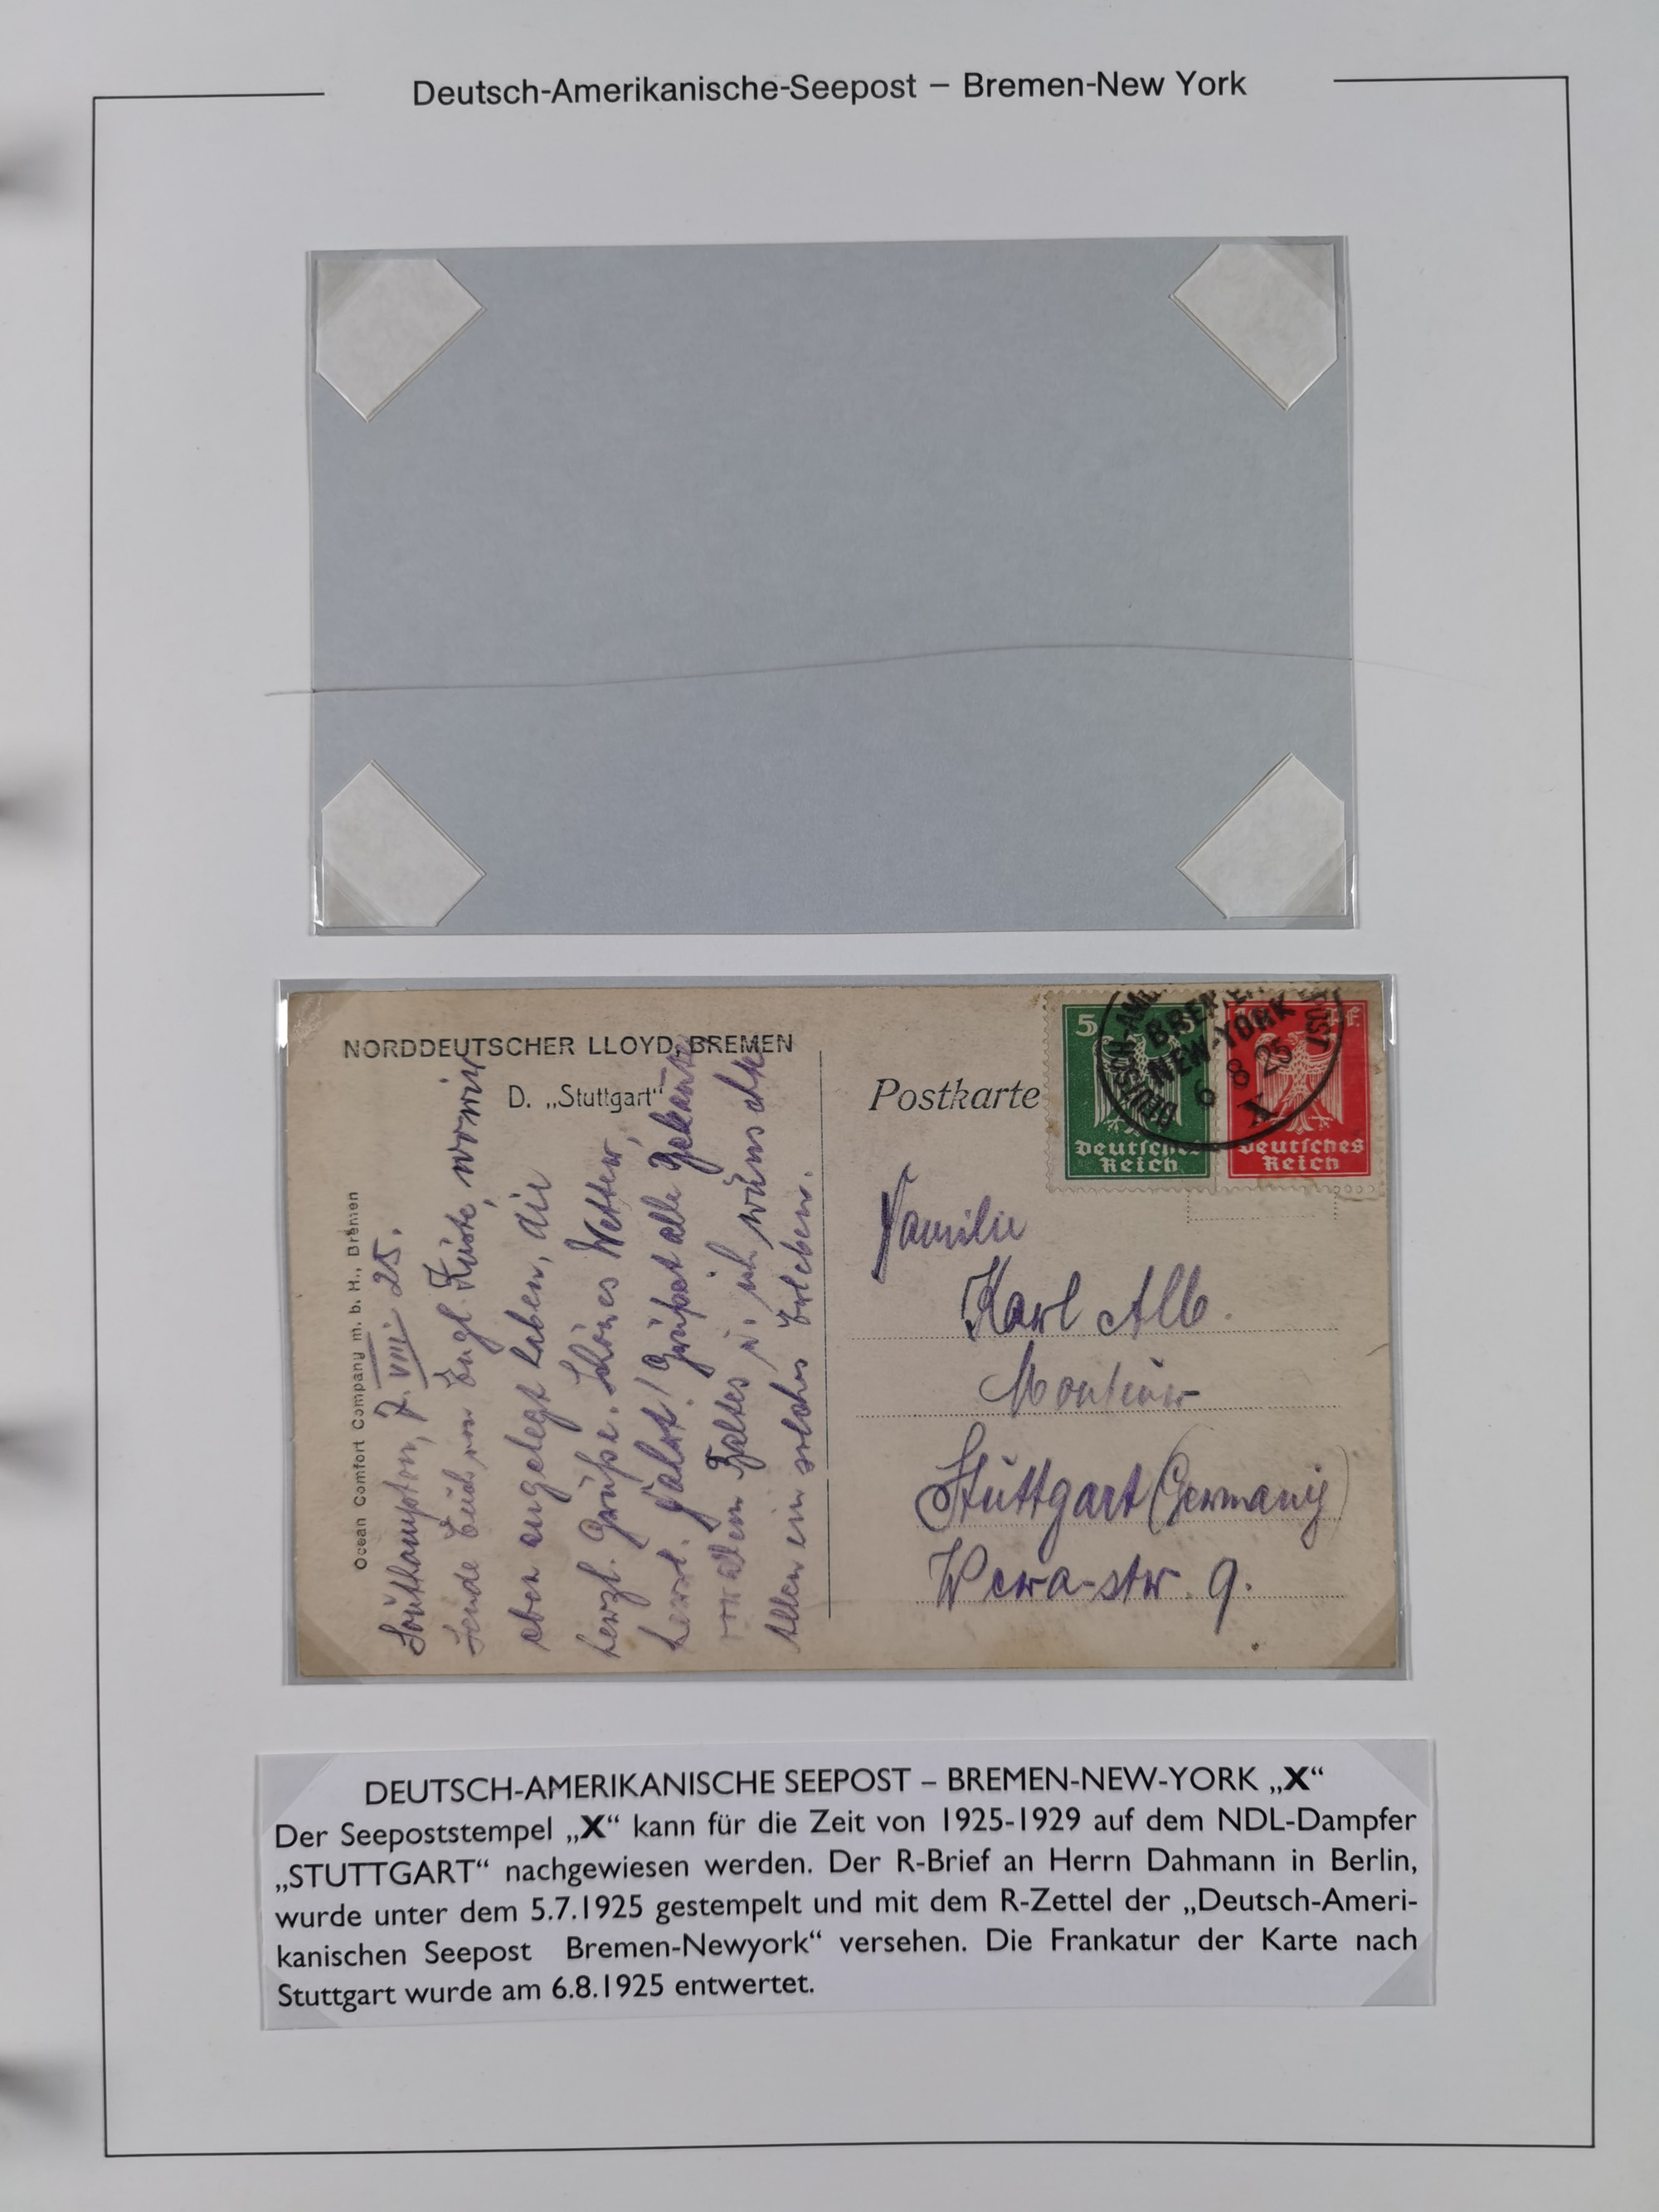 Deutsch-Amerikanische-Seepost – Bremen-New York
NORDDEUTSCHER LLOYD, BREMEN
D. „Stuttgart“
Ocean Comfort Company m. b. H., Bremen
Southampton, 7. VIII. 25.
Sende Euch von Engl. Küste, wo wir
eben angelegt haben, die
herzl. Grüße. Schönes Wetter,
herrl. Fahrt! Grüßet alle Bekannte
u. ich wünschte
Allen ein solches Erleben.
Postkarte
5
Deutsches
Reich
Deutsches
Reich
BREMEN
NEW-YORK
6 8 25
X
Familie
Karl Alb.
Stuttgart (Germany)
Wera-str. 9.
DEUTSCH-AMERIKANISCHE SEEPOST – BREMEN-NEW-YORK „X“
Der Seepoststempel „X“ kann für die Zeit von 1925-1929 auf dem NDL-Dampfer
„STUTTGART“ nachgewiesen werden. Der R-Brief an Herrn Dahmann in Berlin,
wurde unter dem 5.7.1925 gestempelt und mit dem R-Zettel der „Deutsch-Ameri-
kanischen Seepost Bremen-Newyork“ versehen. Die Frankatur der Karte nach
Stuttgart wurde am 6.8.1925 entwertet.